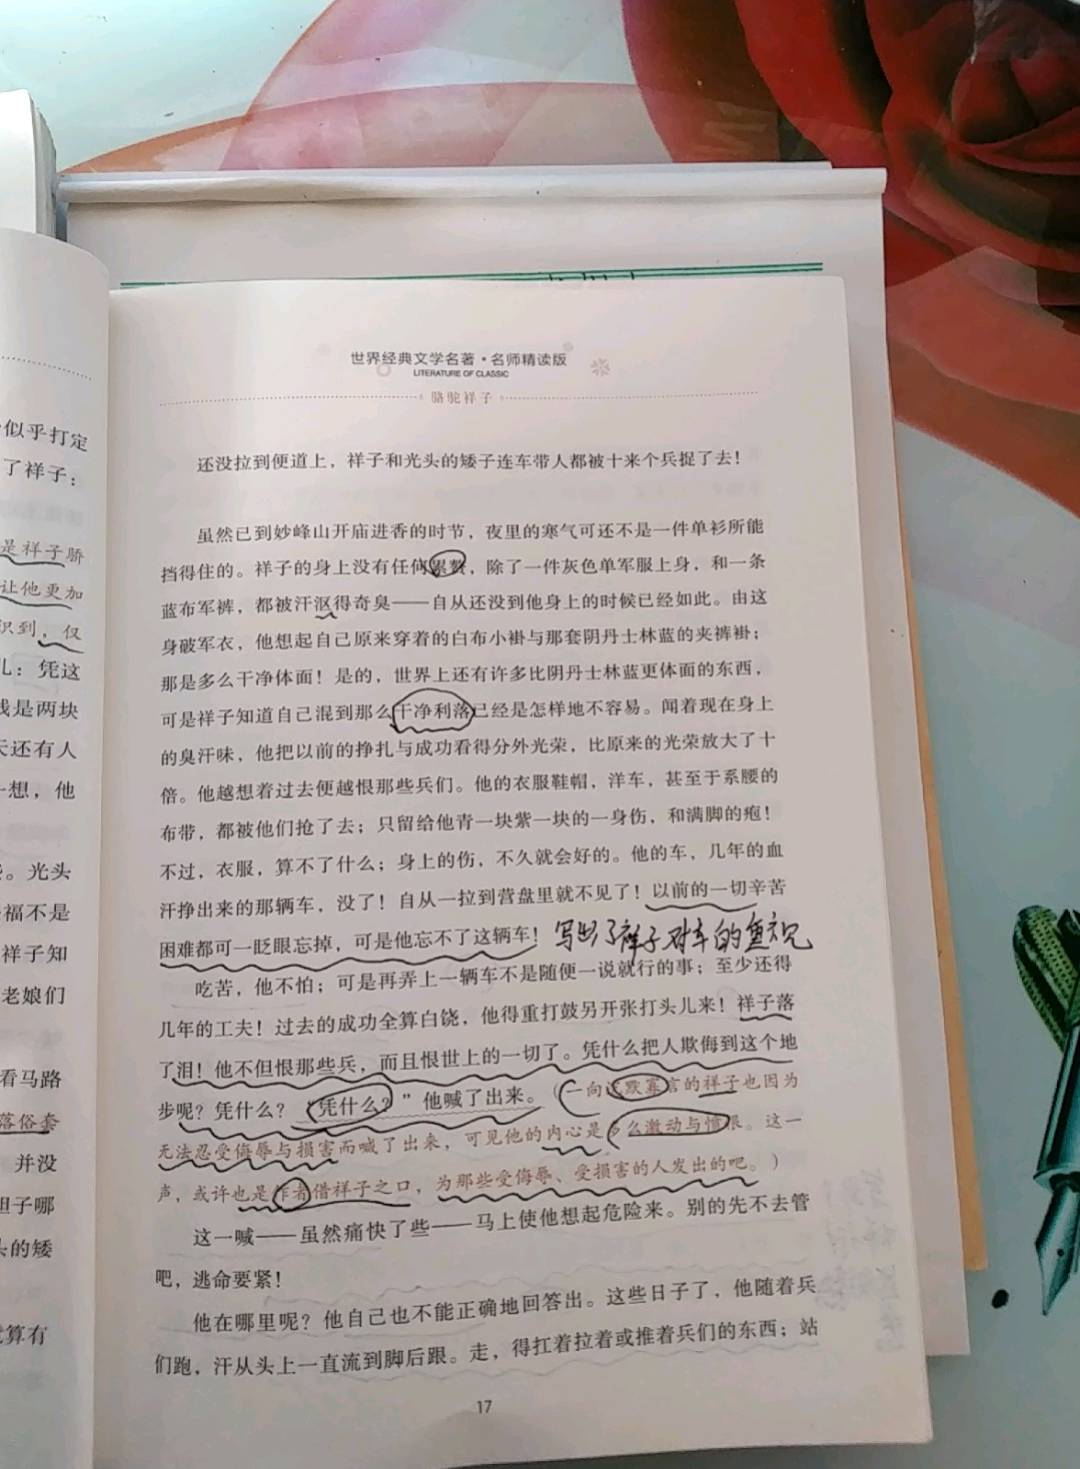 似乎打定
了祥子：
是祥子骄
让他更加
识到，仅
儿：凭这
钱是两块
天还有人
一想，他
。光头
福不是
祥子知
老娘们
看马路
落俗套
并没
胆子哪
头的矮
算有
世界经典文学名著·名师精读版
LITERATURE OF CLASSIC
骆驼祥子
还没拉到便道上，祥子和光头的矮子连车带人都被十来个兵捉了去！
虽然已到妙峰山开庙进香的时节，夜里的寒气可还不是一件单衫所能
挡得住的。祥子的身上没有任何累赘，除了一件灰色单军服上身，和一条
蓝布军裤，都被汗沤得奇臭——自从还没到他身上的时候已经如此。由这
身破军衣，他想起自己原来穿着的白布小褂与那套阴丹士林蓝的夹裤褂；
那是多么干净体面！是的，世界上还有许多比阴丹士林蓝更体面的东西，
可是祥子知道自己混到那么干净利落已经是怎样地不容易。闻着现在身上
的臭汗味，他把以前的挣扎与成功看得分外光荣，比原来的光荣放大了十
倍。他越想着过去便越恨那些兵们。他的衣服鞋帽，洋车，甚至于系腰的
布带，都被他们抢了去；只留给他青一块紫一块的一身伤，和满脚的疱！
不过，衣服，算不了什么；身上的伤，不久就会好的。他的车，几年的血
汗挣出来的那辆车，没了！自从一拉到营盘里就不见了！以前的一切辛苦
困难都可一眨眼忘掉，可是他忘不了这辆车！写出了祥子对车的重视
吃苦，他不怕；可是再弄上一辆车不是随便一说就行的事；至少还得
几年的工夫！过去的成功全算白饶，他得重打鼓另开张打头儿来！祥子落
了泪！他不但恨那些兵，而且恨世上的一切了。凭什么把人欺侮到这个地
步呢？凭什么？“凭什么？”他喊了出来。（一向沉默寡言的祥子也因为
无法忍受侮辱与损害而喊了出来，可见他的内心是多么激动与愤恨。这一
声，或许也是作者借祥子之口，为那些受侮辱、受损害的人发出的吧。）
这一喊——虽然痛快了些——马上使他想起危险来。别的先不去管
吧，逃命要紧！
他在哪里呢？他自己也不能正确地回答出。这些日子了，他随着兵
们跑，汗从头上一直流到脚后跟。走，得扛着拉着或推着兵们的东西；站
17